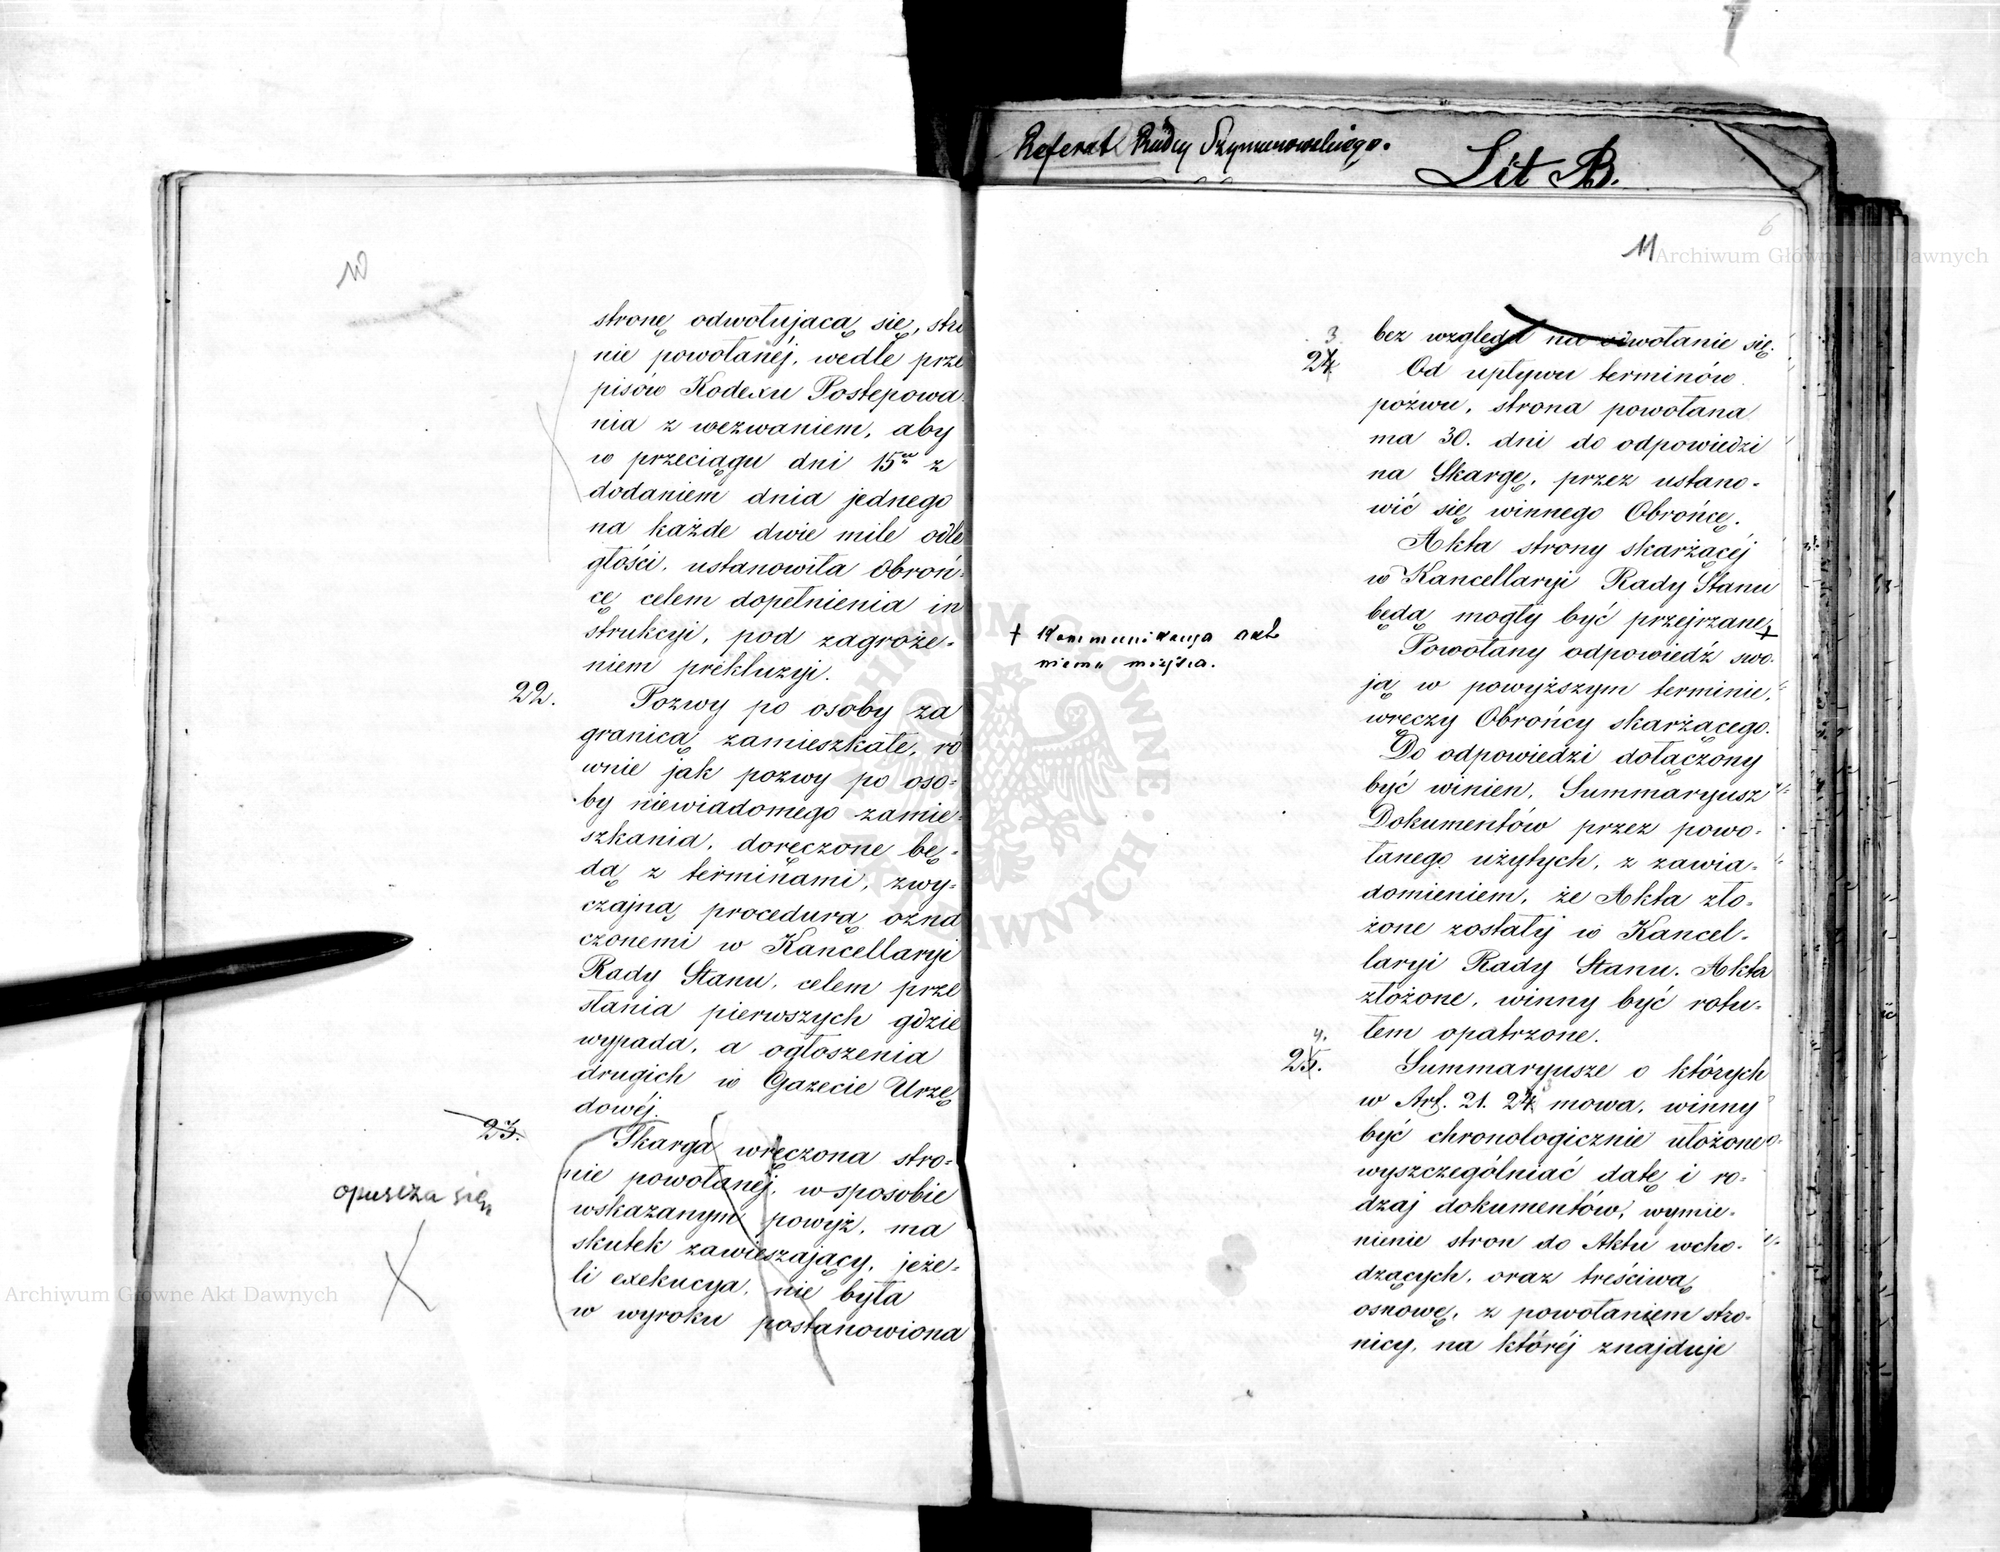 Referat Radcy Szymanowskiego.
Lit B.
10
stronę odwołującą się, stro
nie powołanéj, wedle prze
pisów Kodexu Postepowa
nia z wezwaniem, aby
w przeciągu dni 15tu z
dodaniem dnia jednego
na każde dwie mile odle
głości, ustanowiła Obroń-
cę celem dopełnienia in
strukcyi, pod zagroże-
niem prekluzyi.
22.
Pozwy po osoby za
granicą zamieszkałe, ró
wnie jak pozwy po oso-
by niewiadomego zamie-
szkania, doręczone bę-
dą z terminami, zwy-
czajną procedurą ozna
czonemi w Kancellaryi
Rady Stanu, celem prze
słania pierwszych gdzie
wypada, a ogłoszenia
drugich w Gazecie Urzę
dowéj.
23.
opuszcza się
Skarga wręczona stro-
nie powołanéj, w sposobie
wskazanym powyż, ma
skutek zawieszający, jeże-
li exekucya, nie była
w wyroku postanowiona
11
6
bez względu na odwołanie się.
3.
24
Od upływu terminów
pózwu, strona powołana
ma 30. dni do odpowiedzi
na Skargę, przez ustano-
wić się winnego Obrońcę.
Akta strony skarżącéj
w Kancellaryi Rady Stanu
będą mogły być przejrzane, +
+ Kommunikacya akt
niema miejsca.
Powołany odpowiedź swo-
ją w powyższym terminie,
wręczy Obrońcy skarżącego.
Do odpowiedzi dołączony
być winien, Summaryusz
Dokumentów przez powo-
łanego użytych, z zawia-
domieniem, że Akta zło-
żone zostały w Kancel-
laryi Rady Stanu. Akta
złożone, winny być rotu-
łem opatrzone.
4.
25.
Summaryusze o których
w Art. 21. 24 mowa, winny
być chronologicznie ułożone
wyszczególniać datę i ro-
dzaj dokumentów, wymie-
nienie stron do Aktu wcho-
dzących, oraz treściwą
osnowę, z powołaniem stro-
nicy, na któréj znajduje
Archiwum Główne Akt Dawnych
Archiwum Główne Akt Dawnych
ARCHIWUM GŁÓWNE AKT DAWNYCH